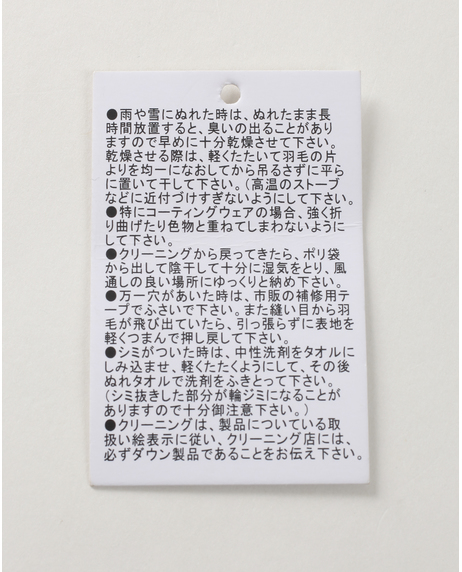 ●雨や雪にぬれた時は、ぬれたまま長
時間放置すると、臭いの出ることがあり
ますので早めに十分乾燥させて下さい。
乾燥させる際は、軽くたたいて羽毛の片
よりを均一になおしてから吊るさずに平ら
に置いて干して下さい。(高温のストーブ
などに近付けすぎないようにして下さい。)
●特にコーティングウェアの場合、強く折
り曲げたり色物と重ねてしまわないように
して下さい。
●クリーニングから戻ってきたら、ポリ袋
から出して陰干して十分に湿気をとり、風
通しの良い場所にゆっくりと納め下さい。
●万一穴があいた時は、市販の補修用テ
ープでふさいで下さい。また縫い目から羽
毛が飛び出ていたら、引っ張らずに表地を
軽くつまんで押し戻して下さい。
●シミがついた時は、中性洗剤をタオルに
しみ込ませ、軽くたたくようにして、その後
ぬれタオルで洗剤をふきとって下さい。
(シミ抜きした部分が輪ジミになることが
ありますので十分御注意下さい。)
●クリーニングは、製品についている取
扱い絵表示に従い、クリーニング店には、
必ずダウン製品であることをお伝え下さい。